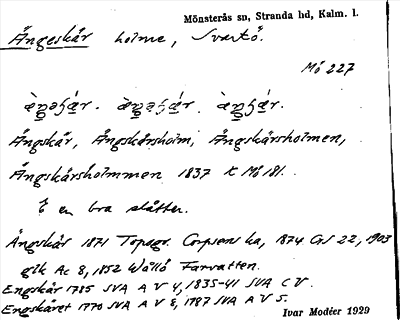 Mönsterås sn, Stranda hd, Kalm. l.
Ängeskär holme, Svartö.
Mö 227
Ängskär, Ängskärsholm, Ängskärsholmen,
Ängskärsholmmen 1837 K Mö 181.
E en bra slåtter.
Ängskär 1871 Topogr. Corpsens ka, 1874 GS 22, 1903
glk Ac 8, 1852 Wållö Farvatten.
Engskär 1785 SVA A V 4, 1835-41 SVA C V.
Engskäret 1770 SVA A V 8, 1787 SVA A V 5.
Ivar Modéer 1929